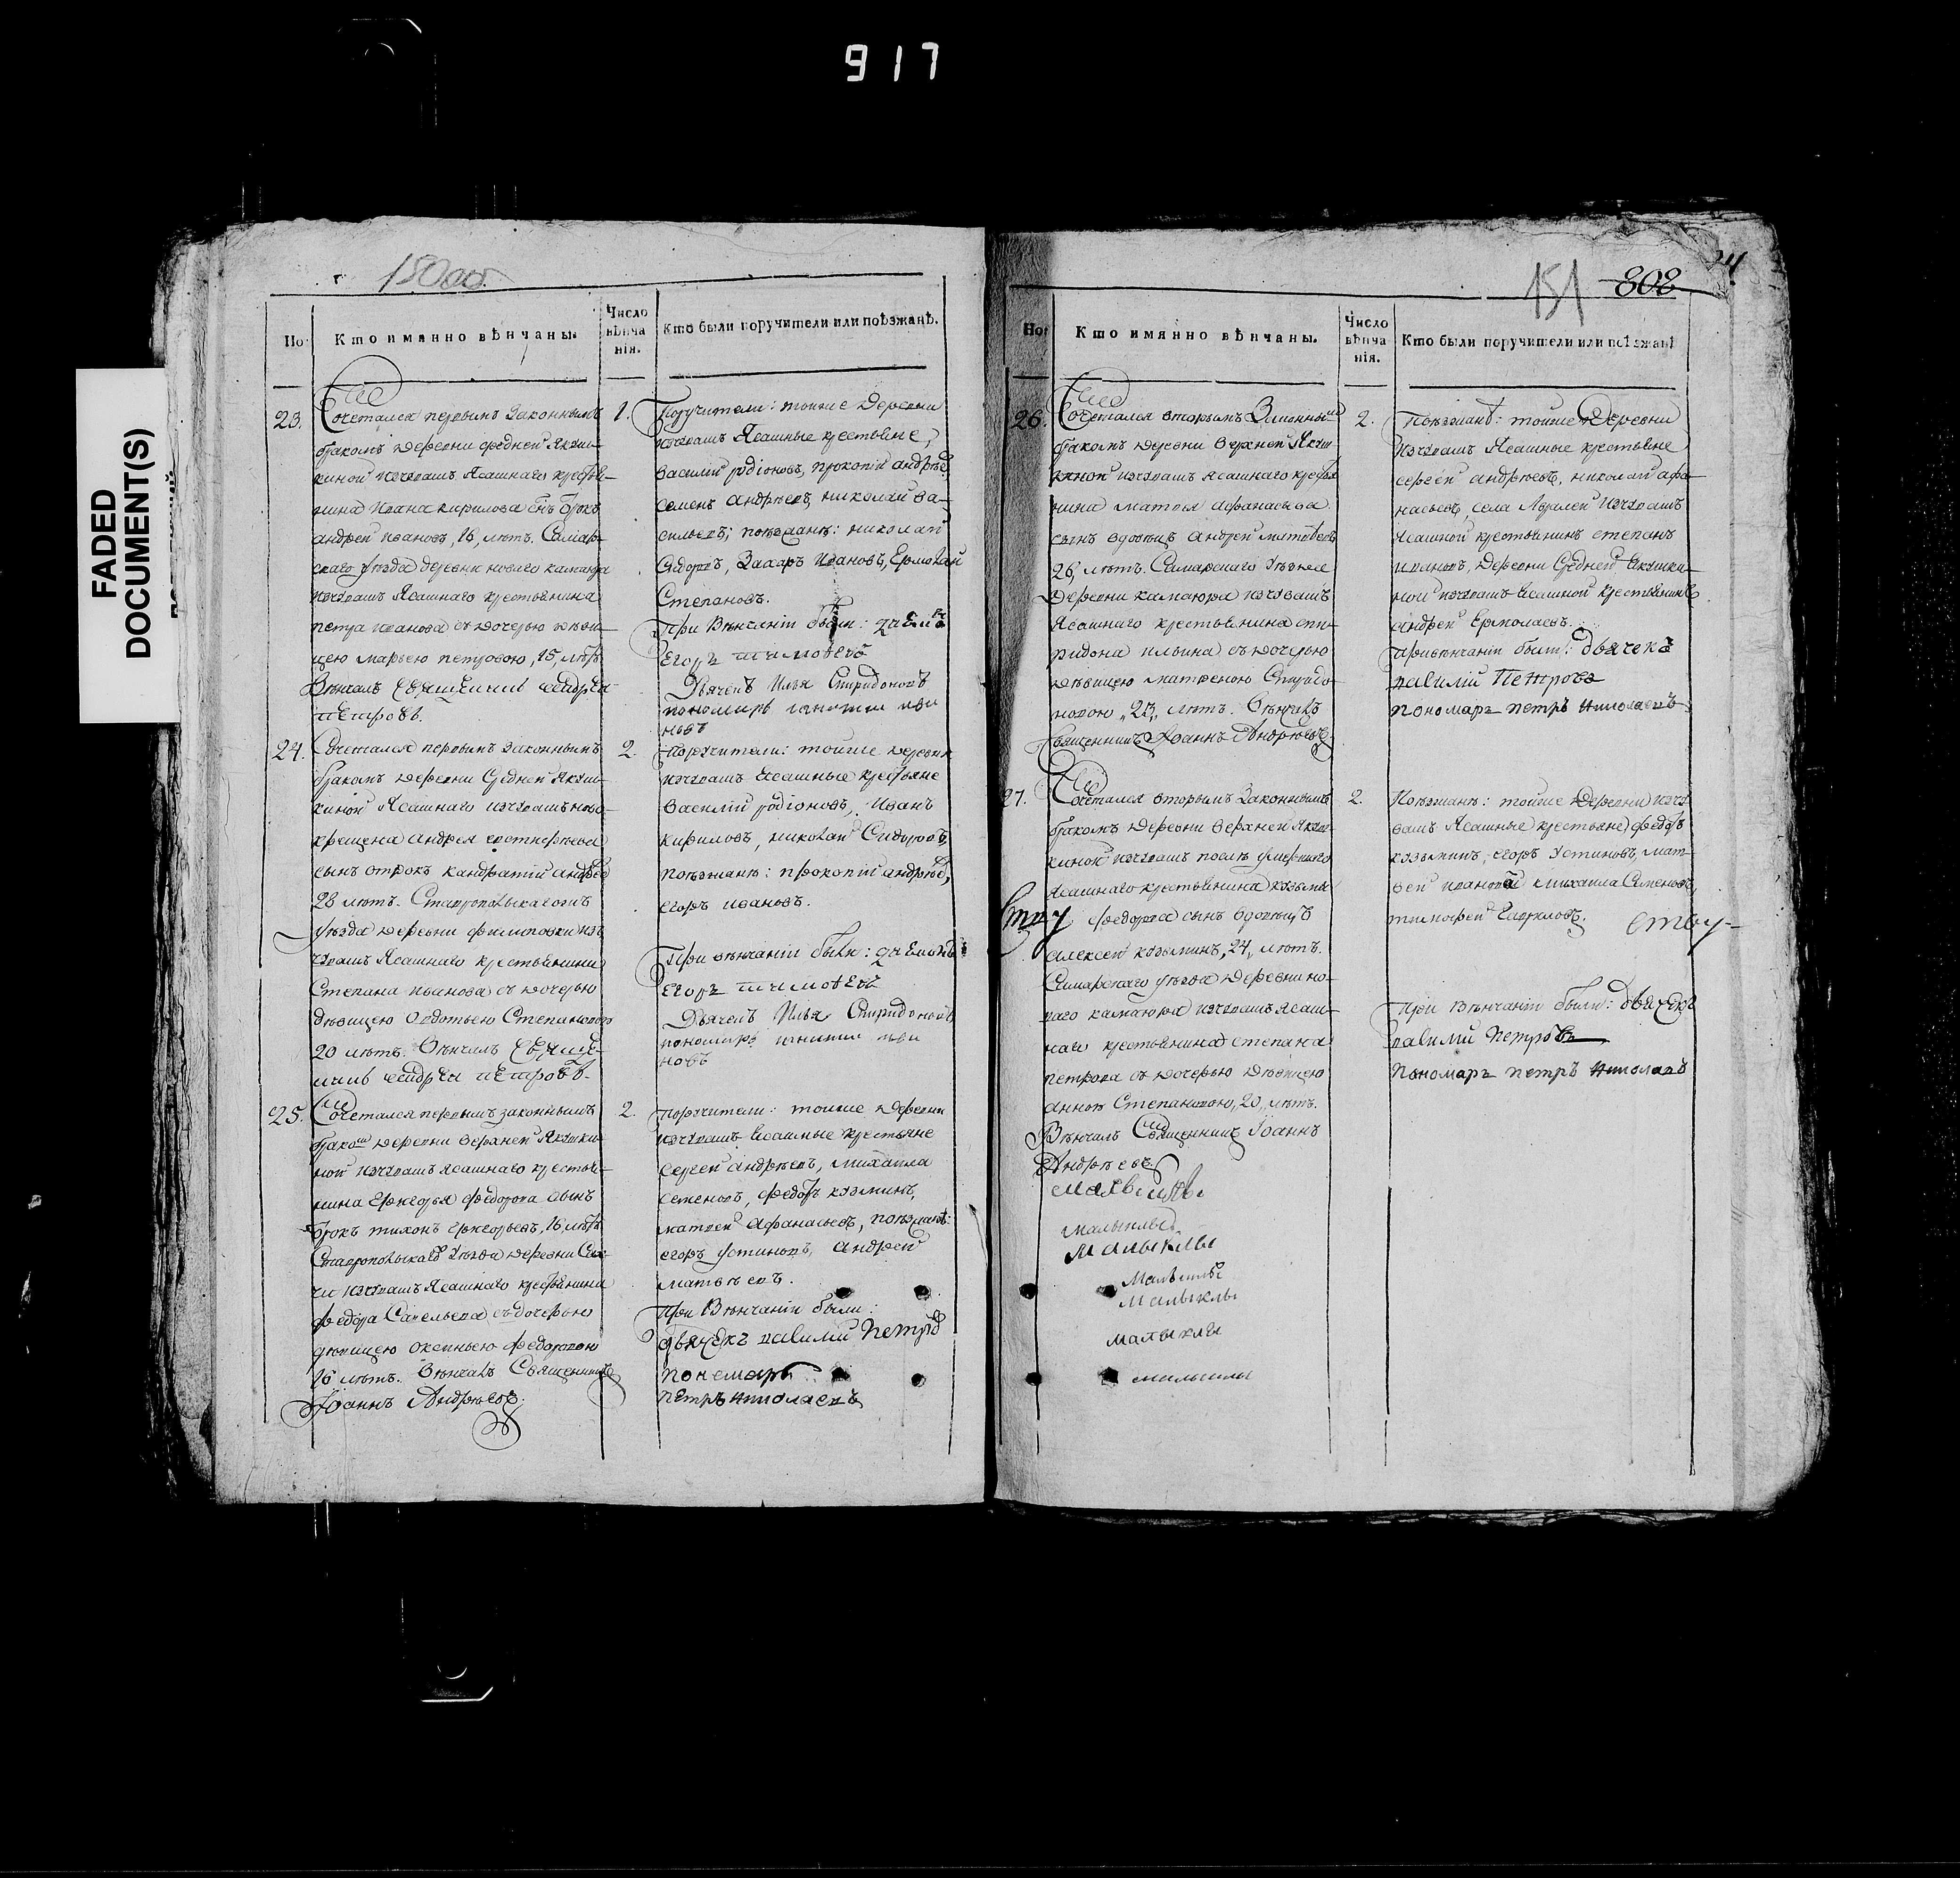 917
FADED
DOCUMENT(S)
150 об.
Но
Кто имянно вѣнчаны.
Число
вѣнча
нія.
Кто были поручители или поѣзжанѣ.
23.
Сочетался первымъ законнымъ
бракомъ деревни средней Якуш-
киной изчувашъ Ясашнаго крестья-
нина Ивана кирилова снъ отрокъ
андрей ивановъ, 16, лѣтъ. Самар-
скаго уѣзда деревни новаго камаюра
изчувашъ Ясашнаго крестьянина
петра иванова съ дочерью дѣви-
цею марьею петровою, 15, лѣтъ
Вѣнчалъ священникъ андреи
петровъ.
1.
Поручители: тойже деревни
изчувашъ Ясашные крестьяне,
василий родіоновъ, прокопій андрѣе
семенъ андрѣевъ, николай ва-
сильевъ; поѣзжанѣ: николай
Сидоровъ, Захаръ Ивановъ, Ермолай
Степановъ.
При Вѣнчаніи были:
Егоръ тимовеевъ
Дьячекъ Илья Спиридоновъ
пономарь игнатий ива
новъ
24.
Сочетался первымъ законнымъ
бракомъ деревни Средней Якуш-
киной Ясашнаго изчувашъ ново-
крещена андрея
сынъ отрокъ кандратій андрѣев
28 лѣтъ. Ставропольскагожъ
уѣзда деревни филиповки изъ
чувашъ Ясашнаго крестьянина
Степана иванова съ дочерью
дѣвицею овдотьею Степановою
20 лѣтъ. Вѣнчалъ священ-
никъ андреи петровъ.
2.
Поручители: тойже деревни
изчувашъ Ясашные крестьяне
василій родіоновъ, Иванъ
кириловъ, николай Сидоровъ,
поѣзжанѣ: прокопій андрѣев,
егоръ ивановъ.
При вѣнчаніи были:
Егоръ тимовеевъ
Дьячекъ Илья Спиридоновъ
пономарь игнатии ива
новъ
25.
Сочетался первымъ законнымъ
бракомъ деревни верхней Якушки-
ной изчувашъ ясашнаго крестья-
нина федорова сынъ
отрокъ тихонъ 16, лѣтъ
Ставропольскагожъ Уѣзда деревни
изчувашъ Ясашнаго крестьянина
федора Савельева съ дочерью
дѣвицею оксиньею федоровою
16 лѣтъ. Вѣнчалъ Священникъ
Іоаннъ Андрѣевъ.
2.
поручители: тойже деревни
изчувашъ Ясашные крестьяне
сергеи андрѣевъ, михаила
семеновъ, федоръ козминъ,
матвей Афанасьевъ, поѣзжанѣ:
егоръ устиновъ, андрей
матвѣевъ.
При Вѣнчаніи были:
дьячекъ павилии петровъ
пономарь
петръ николаевъ
151
808
Но
Кто имянно вѣнчаны.
Число
вѣнча
нія.
Кто были поручители или поѣзжанѣ
26.
Сочетался вторымъ Законнымъ
бракомъ деревни верхней Якуш-
киной изчувашъ ясашнаго крестья
нина матвея афанасьева
сынъ вдовецъ андрей матвѣевъ
26, лѣтъ. Самарскаго Уѣзда
деревни камаюра изчувашъ
Ясашнаго крестьянина спи-
ридона ильина съ дочерью
дѣвицею матреною Спиридо-
новою „23„ лѣтъ. Вѣнчалъ
Священникъ Іоаннъ Андрѣевъ.
2.
Поѣзжанѣ: тойже Деревни
изчувашъ Ясашные крестьяне
сергей андрѣевъ, николай афа-
насьевъ, села изчувашъ
Ясашной крестьянинъ степанъ
ивановъ, Деревни Средней Якушки-
ной изчувашъ Ясашной крестьянинъ
андрей Ермолаевъ.
При вѣнчаніи были: дьячекъ
павилій Петровъ
пономарь петръ николаевъ
27.
Сочетался вторымъ Законнымъ
бракомъ деревни верхней Якуш-
киной изчувашъ послѣ умершаго
Ясашнаго крестьянина козьмы
федорова сынъ вдовецъ
алексей козьминъ, 24, лѣтъ.
Самарскаго уѣзда деревни но-
ваго камаюра изчувашъ Ясаш-
наго крестьянина степана
петрова съ дочерью дѣвицею
анною Степановою, 20, лѣтъ.
Вѣнчалъ Священникъ Іоаннъ
Андрѣевъ.
2.
Поѣзжанѣ: тойже Деревни изчу-
вашъ Ясашные крестьяне федоръ
козьминъ, егоръ Устиновъ, мат-
вей ивановъ михаила Семеновъ,
тимофей Гавриловъ.
При Вѣнчаніи были: дьячекъ
павилий петровъ
Пономарь петръ николаевъ
Малыклы
Малыклы
Малыклы
Малыклы
Малыклы